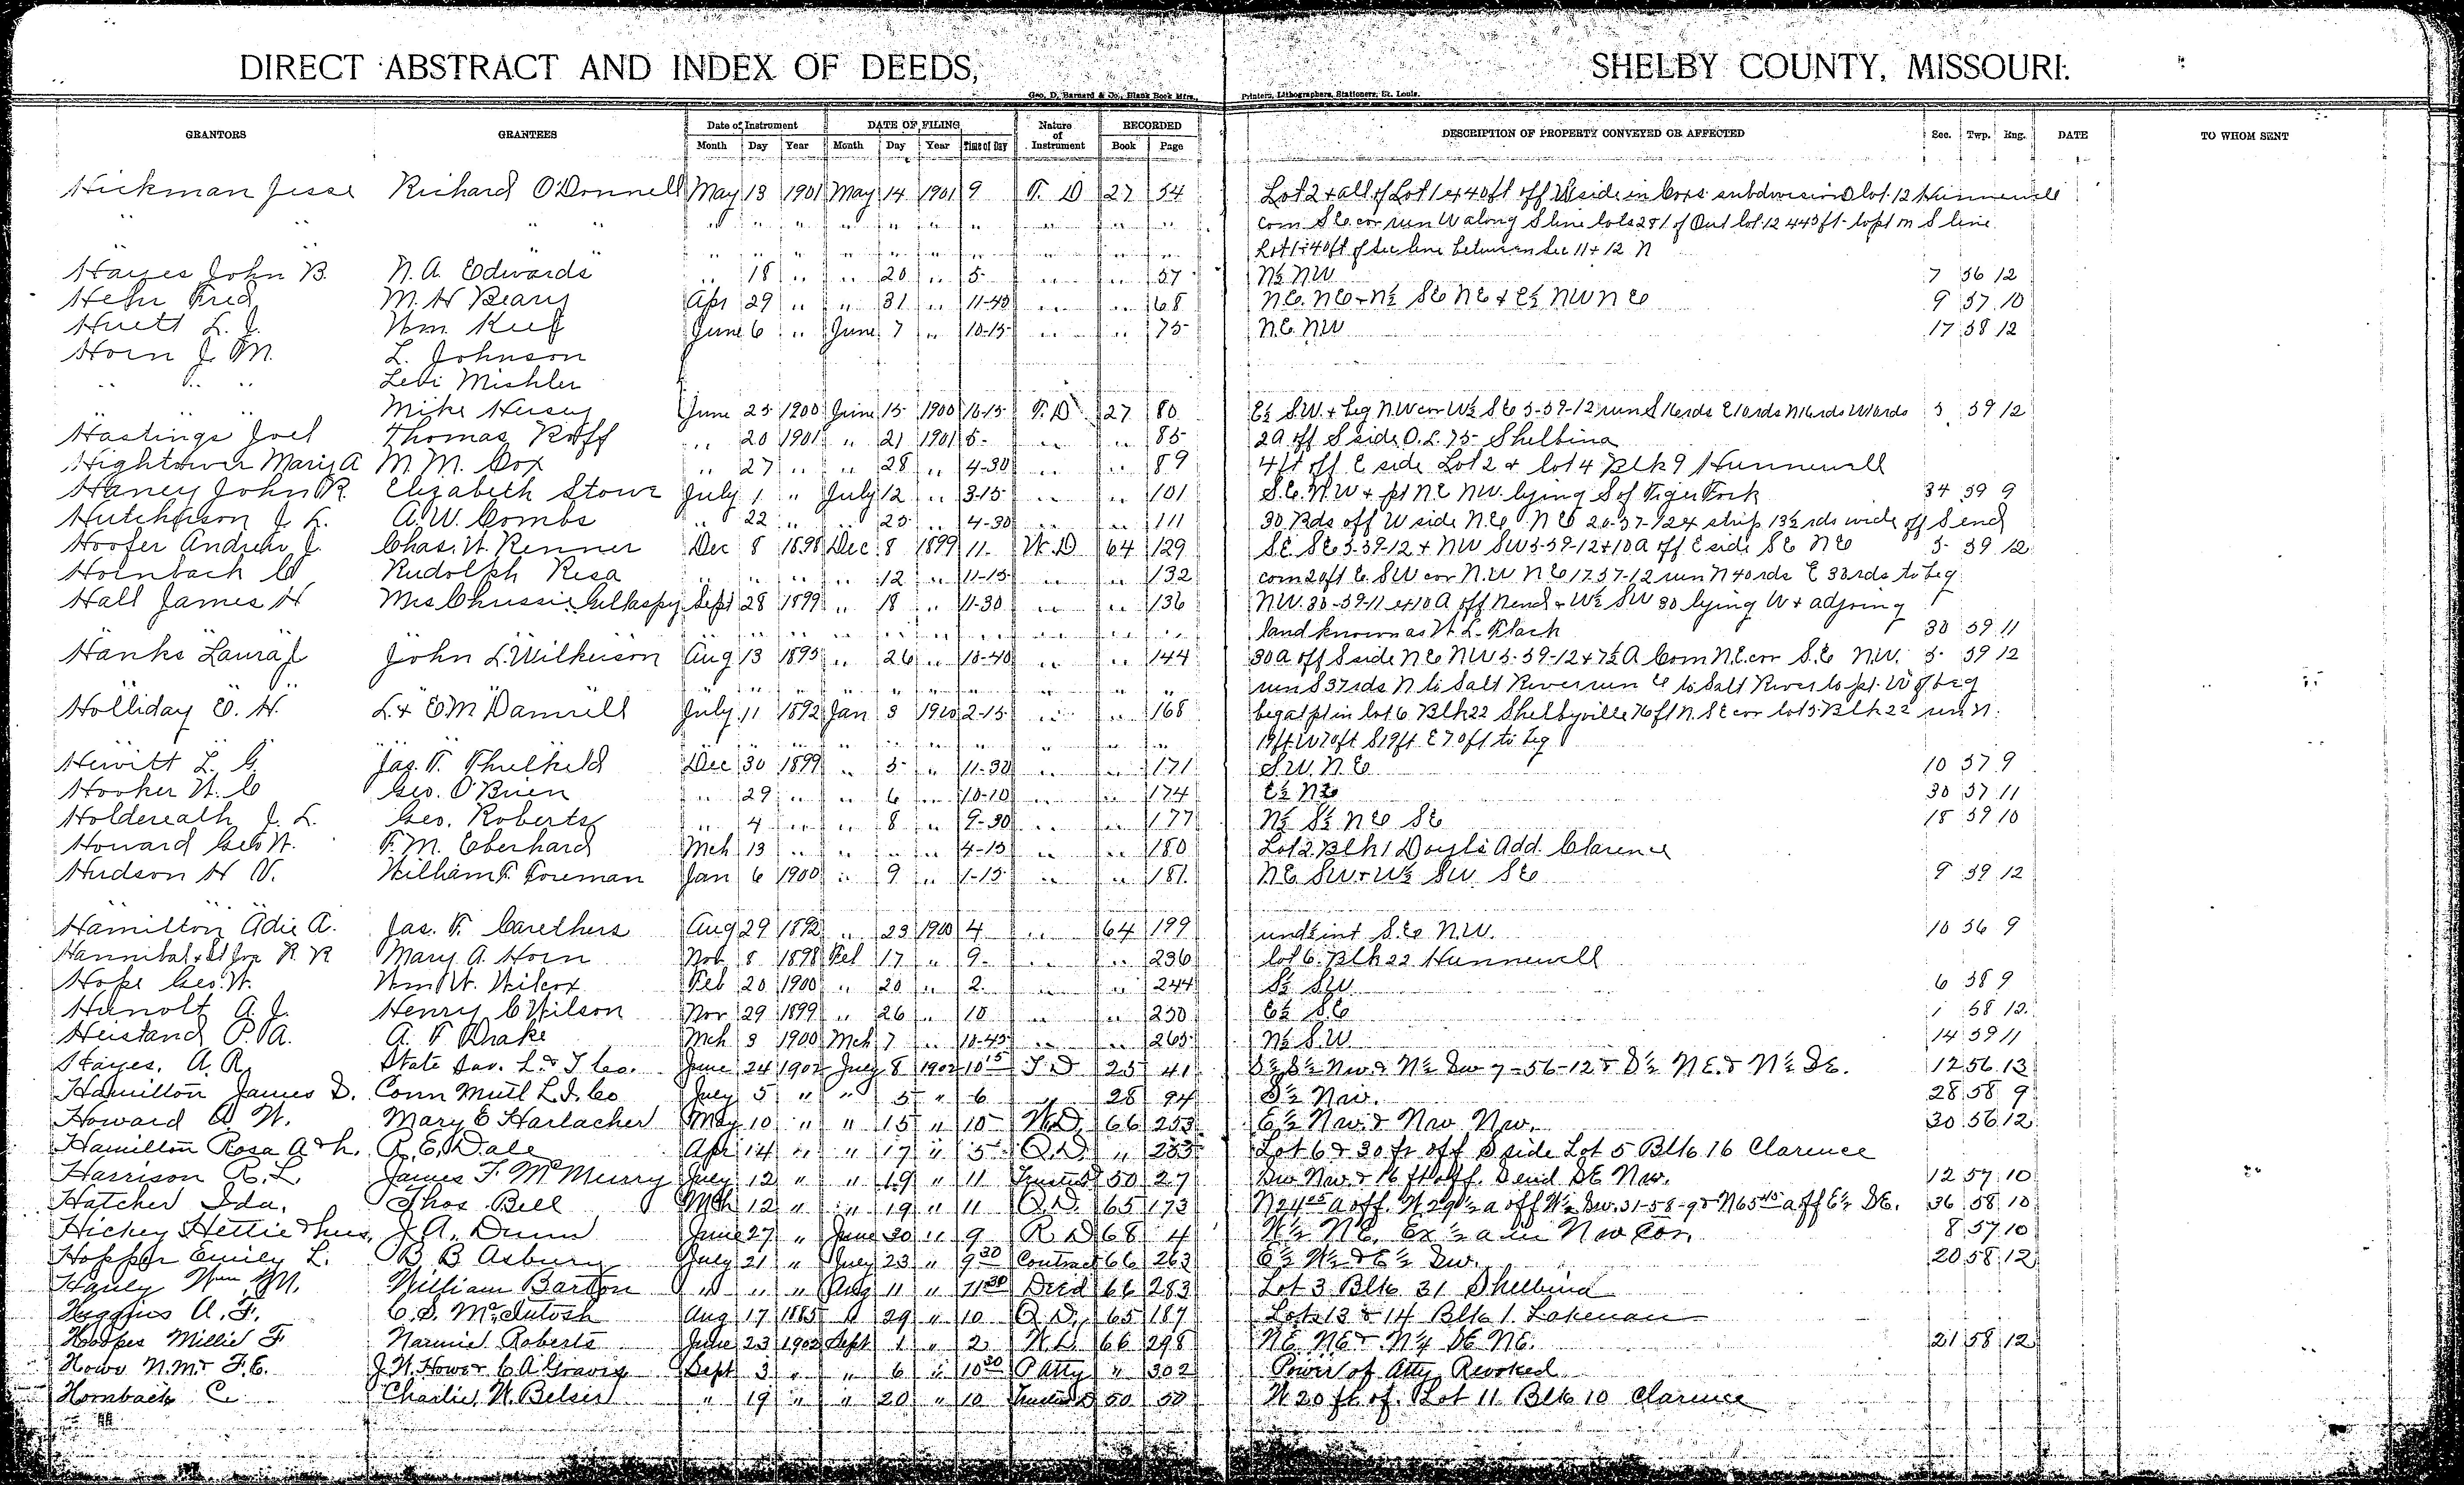 DIRECT ABSTRACT AND INDEX OF DEEDS, SHELBY COUNTY, MISSOURI.
Geo. D. Barnard & Co., Blank Book Mfrs., Printers, Lithographers, Stationers, St. Louis.
GRANTORS GRANTEES Date of Instrument DATE OF FILING Nature of Instrument RECORDED DESCRIPTION OF PROPERTY CONVEYED OR AFFECTED Sec. Twp. Rng. DATE TO WHOM SENT
Month Day Year Month Day Year Time of Day Book Page
Hickman Jesse Richard O'Donnell May 13 1901 May 14 1901 9 T. D 27 54 Lot 2 & all of Lot 1 ex 40 ft off W side in Cox's subdivision O lot 12 Hunnewell
" " " " " " " " " " " " " " com S E cor run W along S line lots 2 & 1 of Out lot 12 443 ft to pt on S line
" " " " " " " " " " " " " Lot 1 40 ft of Sec line between Sec 11 + 12 N
Hayes John B. N. A. Edwards " 18 " " 20 " 5 " " 57 N½ NW 7 56 12
Hehr Fred M. H Beary Apr 29 " " 31 " 11-40 " " 68 NE. NE & N½ SE NE & E½ NW NE 9 57 10
Huett L. J. Wm. Keef June 6 " June 7 " 10-15 " " 75 N.E. NW 17 58 12
Horn J. M. L. Johnson
" " " Levi Mishler
" " " Mike Hersey June 25 1900 June 15 1900 10-15 T. D 27 80 E½ SW. & beg NW cor W½ SE 5-59-12 run S 16 rds E 10 rds N 16 rds W 10 rds 5 59 12
Hastings Joel Thomas Roff " 20 1901 " 21 1901 5 " " 85 2a off S side O. L. 75 Shelbina
Hightower Mary A M. M. Cox " 27 " " 28 " 4-30 " " 89 4 ft off E side Lot 2 & lot 4 Blk 9 Hunnewell
Haney John R. Elizabeth Stowe July 1 " July 12 " 3-15 " " 101 S. E. N. W & pt NE NW. lying S of Tiger Fork 34 59 9
Hutchison J. L. A. W. Combs " 22 " " 25 " 4-30 " " 111 30 Rds off W side N. E. N E 26-57-12 ex strip 13½ rds wide off S end
Hoofer Andrew J. Chas. W. Renner Dec 8 1898 Dec 8 1899 11 W. D 64 129 SE SE 5-59-12 & NW SW 5-59-12 & 10 a off E side SE NE 5 59 12
Hornback C Rudolph Resa " " " " 12 " 11-15 " " 132 com 20 ft E. SW cor N.W NE 17 57-12 run N 40 rds E 33 rds to beg
Hall James H Mrs Chrissie Gillaspy Sept 28 1899 " 18 " 11-30 " " 136 NW. 30-59-11 ex 10 A off N end & W½ SW 30 lying W & adjoing
" " " " " " " " " " land known as W. L. Flach 30 59 11
Hanks Laura J John L. Wilkerson Aug 13 1895 " 26 " 10-40 " " 144 30 a off S side NE NW 5-59-12 & 7½ A Com N.E. cor S. E NW. 5 59 12
" " " " " " " " " " run S 37 rds N to Salt River run E to Salt River to pt. W of beg
Holliday E. H. L. & E M Damrell July 11 1892 Jan 3 1900 2-15 " " 168 beg at pt in lot 6 Blk 22 Shelbyville 76 ft N. SE cor lot 5 Blk 22 run N.
" " " " " " " " " " 19 ft W 70 ft S 19 ft E 70 ft to beg
Hewitt L. G. Jas. T. Thulkeld Dec 30 1899 " 5 " 11-30 " " 171 S.W. N. E 10 57 9
Hooker W. C Geo. O'Brien " 29 " " 6 " 10-10 " " 174 E½ NE 30 57 11
Holdereath J. L. Geo. Roberts " 4 " " 8 " 9-30 " " 177 N½ S½ NE SE 18 59 10
Howard Geo W. F. M. Eberhard Mch 13 " " " " 4-15 " " 180 Lot 2 Blk 1 Doyle's Add. Clarence
Hudson H V. William T. Foreman Jan 6 1900 " 9 " 1-15 " " 181 NE SW & W½ SW SE 9 59 12
Hamilton Adie A. Jas. F. Carethers Aug 29 1892 " 23 1900 4 " 64 199 und ½ int S. E. N.W. 10 56 9
Hannibal & St Joe R R Mary A. Horn Nov 8 1898 Feb 17 " 9 " " 236 lot 6 Blk 22 Hunnewell
Hope Geo. W. Wm. W. Wilcox Feb 20 1900 " 20 " 2 " " 244 S½ SW 6 58 9
Hunolt A. J. Henry C Wilson Nov 29 1899 " 26 " 10 " " 250 E½ S.E 1 58 12
Heistand P. A. A. F Drake Mch 3 1900 Mch 7 " 10-45 " " 265 N½ S.W 14 59 11
Hayes, A. R. State Sav. L. & T Co. June 24 1902 July 8 1902 10 15 T. D 25 41 S½ S½ NW & N½ SW 7-56-12 & S½ NE. & N½ SE. 12 56 13
Hamilton James D. Conn Mutl L. I. Co July 5 " " 5 " 6 " 28 94 S½ NW. 28 58 9
Howard A. W. Mary E Harlacher May 10 " " 15 " 10 W.D. 66 253 E½ NW. & NW NW. 30 56 12
Hamilton Rosa A & h. R. E. Dale Apr 14 " " 17 " 5 Q. D. " 255 Lot 6 & 30 ft off S side Lot 5 Blk 16 Clarence
Harrison R. L. James F. McMurry July 12 " " 19 " 11 Trustees 50 27 SW NW. & 16 ft off. S end SE NW. 12 57 10
Hatcher Ida. Thos. Bell Mch 12 " " 19 " 11 Q. D. 65 173 N 24 a off. W 29½ a off W½ SW. 31-58-9 & N 65 45 a off E½ SE. 36 58 10
Hickey Hettie & hus, J. A. Dunn June 27 " June 30 " 9 R D 68 4 W½ NE, Ex ½ a in NW Cor. 8 57 10
Hopper Emily L. B. B Asbury July 21 " July 23 " 9 30 Contract 66 263 E½ W½ & E½ SW. 20 58 12
Hanly Wm M. William Barton " " " Aug 11 " 11 30 Deed 66 283 Lot 3 Blk 31 Shelbina
Huggins A. F. C. S. McIntosh Aug 17 1885 " 29 " 10 Q. D. 65 187 Lots 13 & 14 Blk 1. Lakenan
Hooper Millie F Nannie Roberts June 23 1902 Sept 1 " 2 W. D. 66 298 NE. NE & N½ SE NE. 21 58 12
Howe N. M. & F. E. J. W. Howe & C A Graves Sept 3 " " 6 " 10 30 P Atty " 302 Power of Atty Revoked
Hornback C. Charlie W. Belsir " 19 " " 20 " 10 Trustees D 50 50 W 20 ft of Lot 11 Blk 10 Clarence